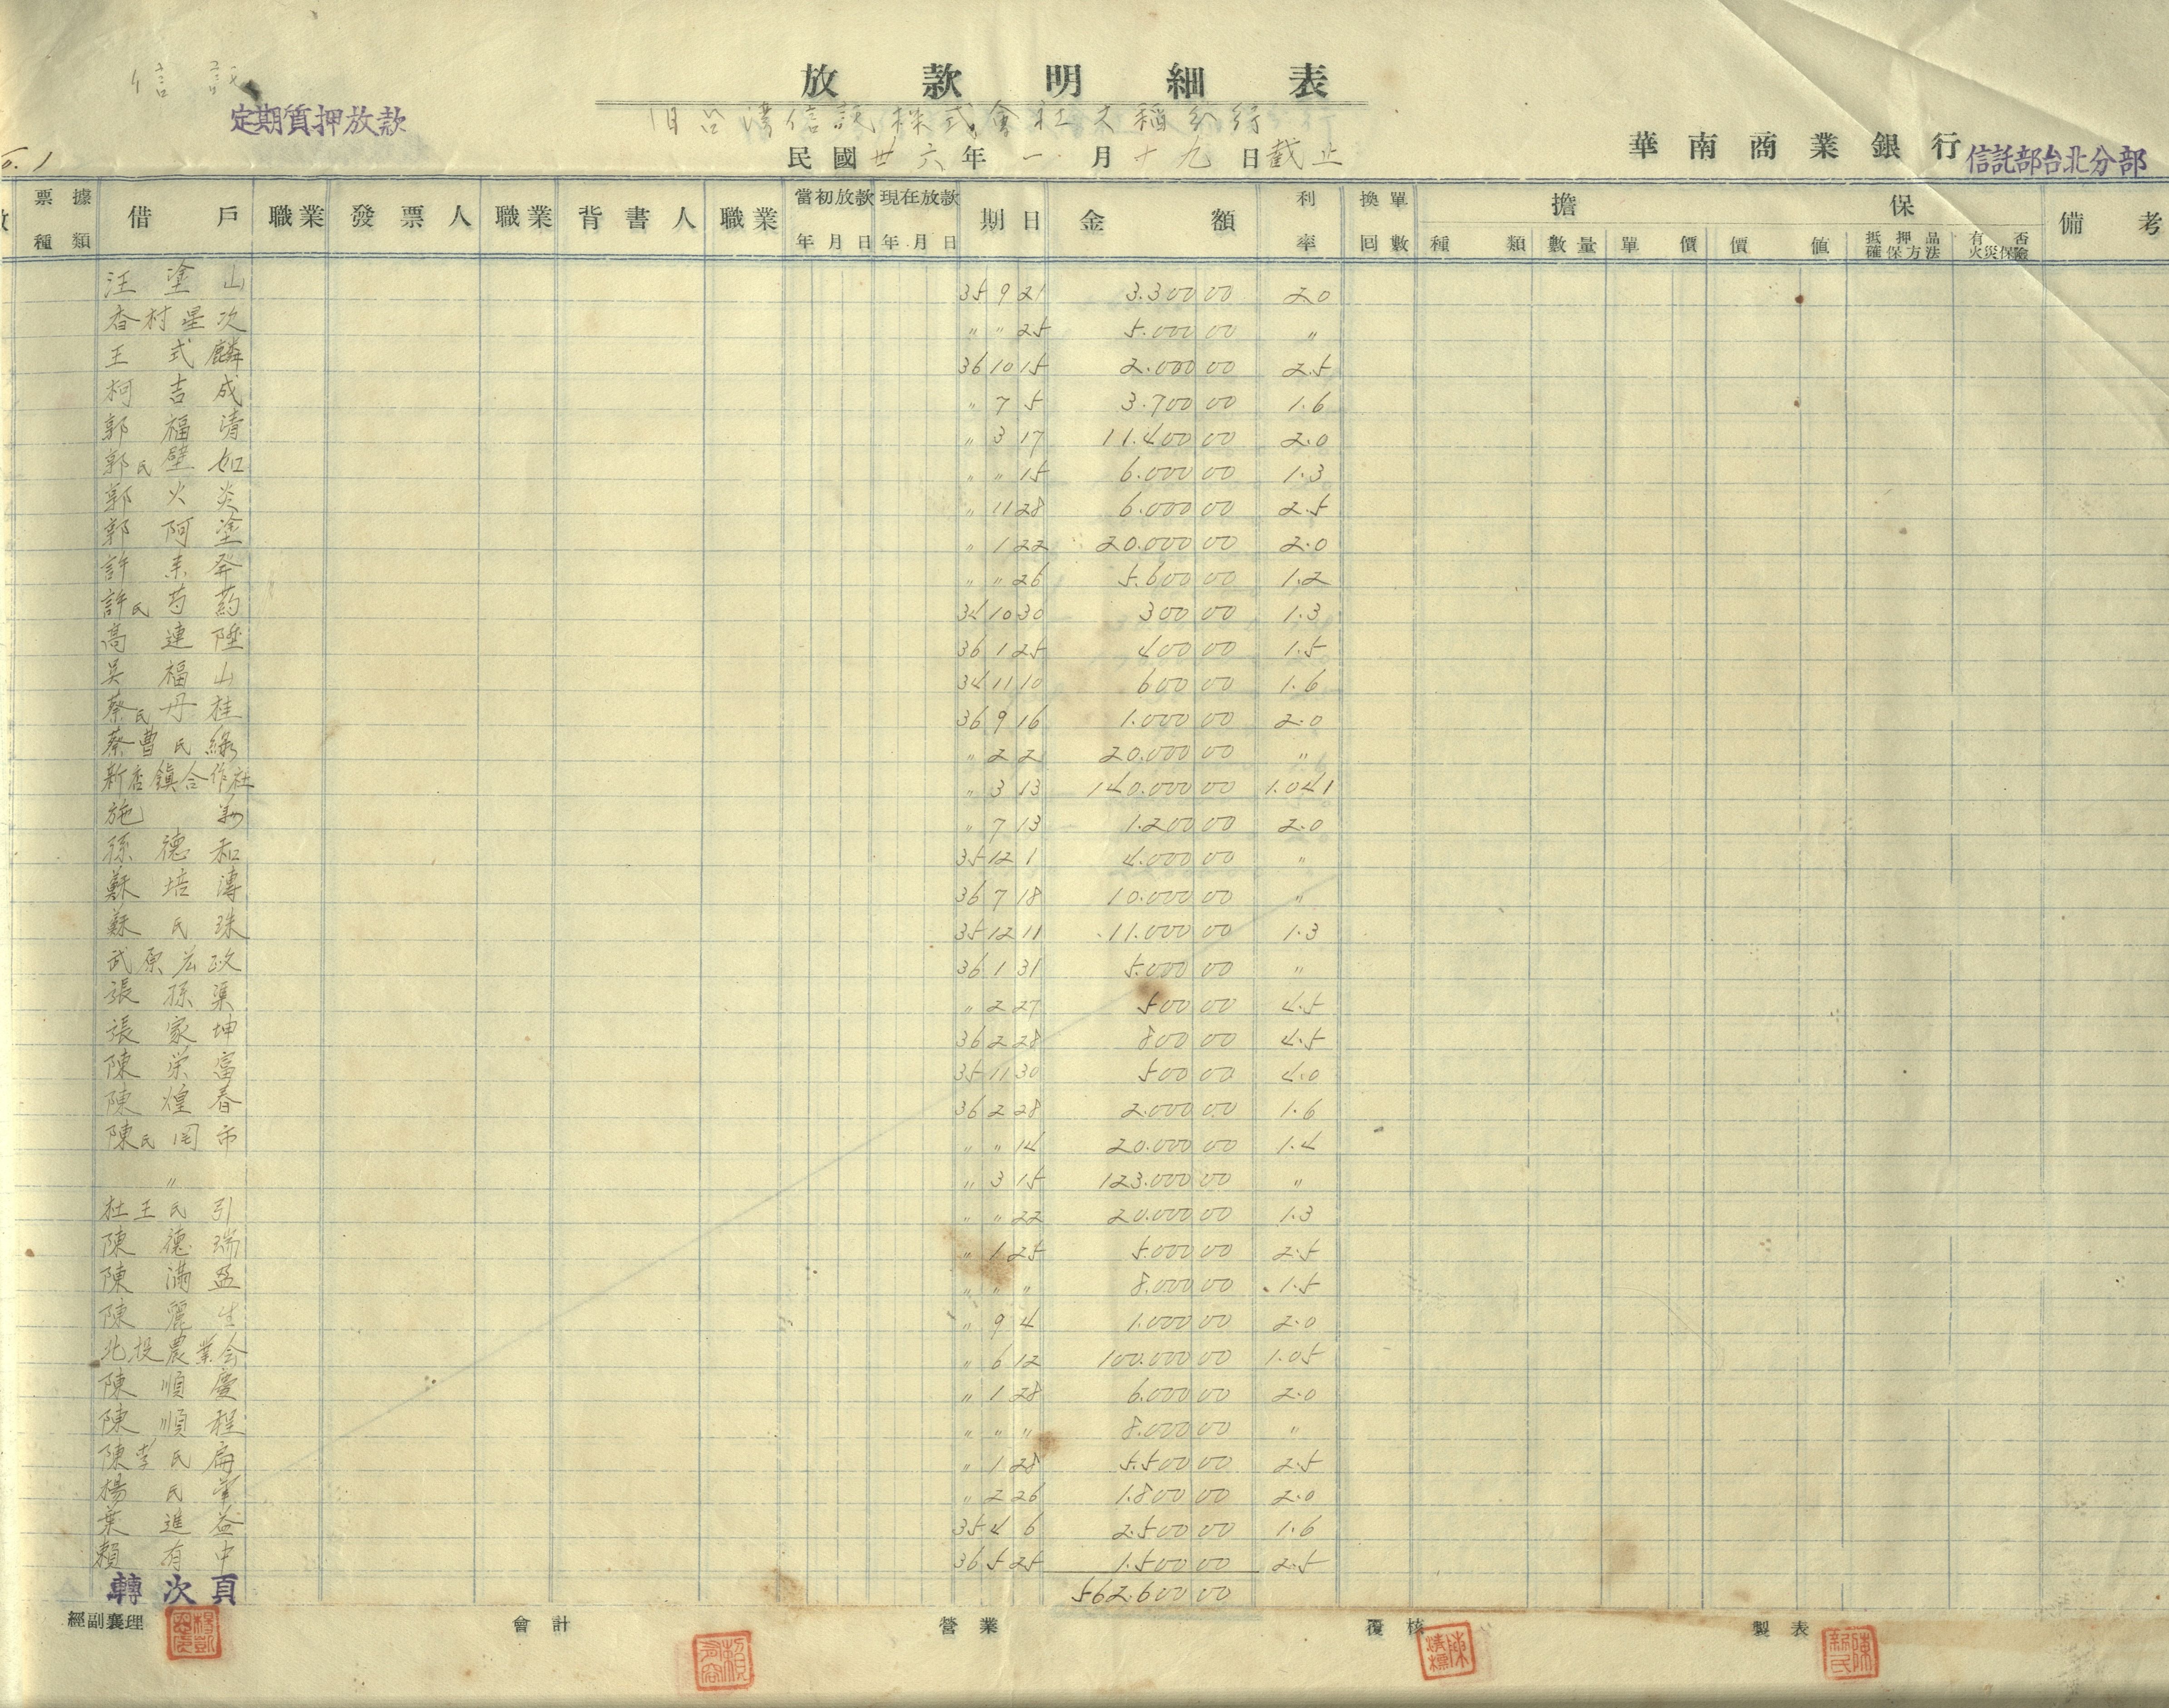 信託
定期質押放款
放款明細表
旧台湾信託株式會社大稲分行
民國卅六年一月十九日截止
華南商業銀行信託部台北分部
No.1
票據種類 借戶 職業 發票人 職業 背書人 職業 當初放款年月日 現在放款年月日 期日 金額 利率 換單回數 擔保 備考
種類 數量 單價 價值 抵押品確保方法 有否火災保險
汪塗山 35 9 21 3.300 00 2.0
香村星次 〃 〃 25 5.000 00 〃
王式麟 36 10 15 2.000 00 2.5
柯吉成 〃 7 5 3.700 00 1.6
郭福清 〃 3 17 11.400 00 2.0
郭氏壁如 〃 〃 15 6.000 00 1.3
郭火炎 〃 11 28 6.000 00 2.5
郭阿塗 〃 1 22 20.000 00 2.0
許来發 〃 〃 26 5.600 00 1.2
許氏芍葯 34 10 30 300 00 1.3
高連陞 36 1 25 400 00 1.5
吳福山 34 11 10 600 00 1.6
蔡氏丹桂 36 9 16 1.000 00 2.0
蔡曹氏綠 〃 2 21 20.000 00 〃
新店鎮合作社 〃 3 13 140.000 00 1.041
施 〃 7 13 1.200 00 2.0
孫德和 35 12 1 4.000 00 〃
蘇培濤 36 7 18 10.000 00 〃
蘇氏珠 35 12 11 11.000 00 1.3
武原宏政 36 1 31 5.000 00 〃
張孫渠 〃 2 27 500 00 4.5
張家坤 36 2 28 800 00 4.5
陳荣富 35 11 30 500 00 4.0
陳煌春 36 2 28 2.000 00 1.6
陳氏罔市 〃 〃 14 20.000 00 1.4
〃 〃 3 15 123.000 00 〃
杜王氏引 〃 〃 22 20.000 00 1.3
陳德瑞 〃 1 25 5.000 00 2.5
陳滿盈 〃 〃 〃 8.000 00 1.5
陳麗生 〃 9 4 1.000 00 2.0
北投農業会 〃 6 12 100.000 00 1.05
陳順慶 〃 1 28 6.000 00 2.0
陳順程 〃 〃 〃 8.000 00 〃
陳李氏扁 〃 1 28 5.500 00 2.5
楊氏 〃 2 26 1.800 00 2.0
葉進益 35 4 6 2.500 00 1.6
賴有中 36 5 25 1.500 00 2.5
轉次頁 562.600 00
經副襄理 會計 營業 覆核 製表